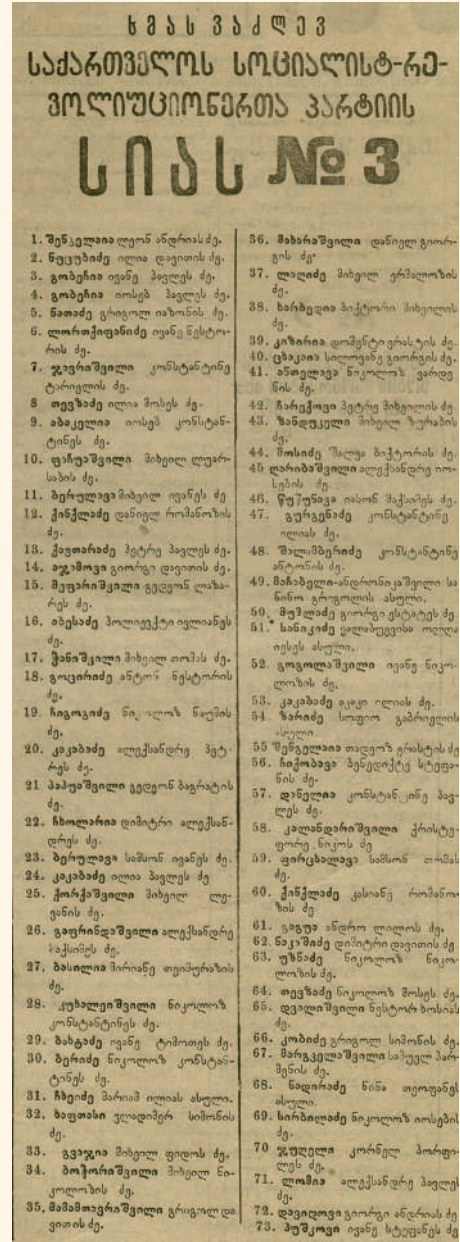 ხმას ვაძლევ
საქართველოს სოციალისტ-რე-
ვოლიუციონერთა პარტიის
სიას №3
1. შენგელაია ლეონ ანდრიას ძე.
2. ნუცუბიძე ილია დავითის ძე.
3. გობეჩია ივანე პავლეს ძე.
4. გობეჩია იოსებ პავლეს ძე.
5. ნათაძე გრიგოლ იაზონის ძე.
6. ლორთქიფანიძე ივანე ნესტო-
რის ძე.
7. ჯავრიშვილი კონსტანტინე
ტარიელის ძე.
8 თევზაძე ილია მოსეს ძე.
9. აბაკელია იოსებ კონსტან-
ტინეს ძე.
10. ფაჩუაშვილი მიხეილ ლუარ-
საბის ძე.
11. ბერულავა მიხეილ ივანეს ძე
12. ჭინქლაძე დანიელ რომანოზის
ძე.
13. ქავთარაძე პეტრე პავლეს ძე.
14. აჯამოვი გიორგი დავითის ძე.
15. მეფარიშვილი გედეონ ლაზა-
რეს ძე.
16. აბესაძე პოლიევქტი ივლიანეს
ძე.
17. ჭანიშვილი მიხეილ თომას ძე.
18. გოცირიძე ანტონ ნესტორის
ძე.
19. ჩიგოგიძე ნიკოლოზ ნაუმის
ძე.
20. კაკაბაძე ალექსანდრე პეტ-
რეს ძე.
21 პაპუაშვილი გედეონ ბაგრატის
ძე.
22. ჩხოლარია დიმიტრი ალექსან-
დრეს ძე.
23. ბერულავა სამსონ ივანეს ძე.
24. კაკაბაძე ილია პავლეს ძე
25. ქორქაშვილი მიხეილ ლე-
ვანის ძე.
26. გაფრინდაშვილი ალექსანდრე
მაქსიმეს ძე.
27. ბასილია მირიანე თეიმურაზის
ძე.
28. კუხალეიშვილი ნიკოლოზ
კონსტანტინეს ძე.
29. ბახტაძე ივანე ტიმოთეს ძე.
30. ბერიძე ნიკოლოზ კონსტან-
ტინეს ძე.
31. ჩხეიძე მარიამ ილიას ასული.
32. ხაფთასი ვლადიმერ სიმონის
ძე.
33. გვაჯია მიხეილ ფიდოს ძე.
34. ბოჭორიშვილი მიხეილ ნი-
კოლოზის ძე.
35, მამამთავრიშვილი გრიგოლ და
ვითის ძე.
36. მახარაშვილი დანიელ გიორ-
გის ძე.
37. ლაღიძე მიხეილ ერმალოზის
ძე.
38. ხარბედია ბიქტორი მიხეილის
ძე.
39. კიზირია დომენტი ერასტის ძე.
40. ცხაკაია სილოვანე გიორგის ძე.
41. ანთელავა ნიკოლოზ ვარდე
ნის ძე.
42. ჩარექოვი პეტრე მიხეილის ძე
43. ზანდუკელი მიხეილ ზურაბის
ძე.
44. მოსიძე შალვა ბიქტორის ძე.
45 ღარიბაშვილი ალექსანდრე იო-
სების ძე.
46. წულუნავა იასონ მაქსიმეს ძე.
47. გურგენაძე კონსტანტინე
ილიას ძე.
48. შალამბერიძე კონსტანტინე
ანტონის ძე.
49. მაჩაბელი-ანდრონიკაშვილი სა
ნინო გრიგოლის ასული.
50. მუმლაძე გიორგი ესტატეს ძე
51. სანიკიძე ყალაბუევისა ოლღა
იესეს ასული.
52. გოგოლაშვილი ივანე ნიკო-
ლოზის ძე.
53. კაკაბაძე აკაკი ილიას ძე.
54. ზარიძე სოფიო გაბრიელის
ასული.
55 შენგელაია თადეოზ ერასტის ძე
56. ჩიქობავა ბენედიქტე სტეფა-
ნის ძე.
57. დანელია კონსტანტინე პავ-
ლეს ძე.
58. კალანდარიშვილი ქრისტე-
ფორე ნიკოს ძე
59. ფირცხალავა სამსონ თომას
ძე.
60. ჭინქლაძე კასიანე რომანო-
ზის ძე
61. გაგუა ანდრო ლილოს ძე.
62. ნაკაშიძე დიმიტრი დავითის ძე
63. უზნაძე ნიკოლოზ ნიკო-
ლოზის ძე.
64. თევზაძე ნიკოლოზ მოსეს ძე.
65. დვალიშვილი ნესტორ ხოსიას
ძე.
66. კობიძე გრიგოლ სიმონის ძე.
67. მარგველაშვილი სამუელ პარ-
მენის ძე.
68. ნადირაძე ნინა თეოფანეს
ასული.
69. სირბილაძე ნიკოლოზ იოსების
ძე.
70 ჯუღელი კორნელ პორფი-
ლეს ძე.
71. ლომია ალექსანდრე პავლეს
ძე.
72. დავიდოვი გიორგი ანდრიას ძე
73. პუშკოვი ივანე სტეფანეს ძე